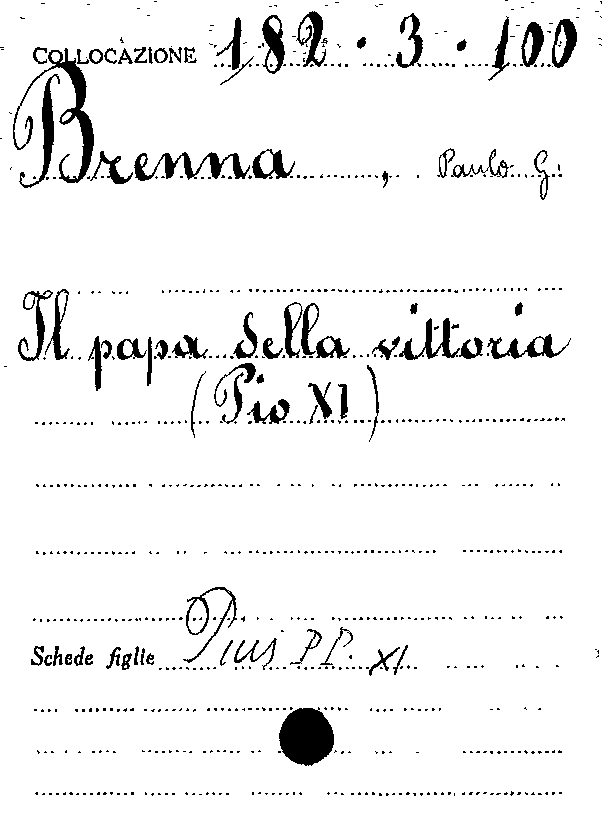 COLLOCAZIONE 182 · 3 · 100
Brenna, Paulo G.
Il papa della vittoria
(Pio XI)
Schede figlie Pius PP. XI